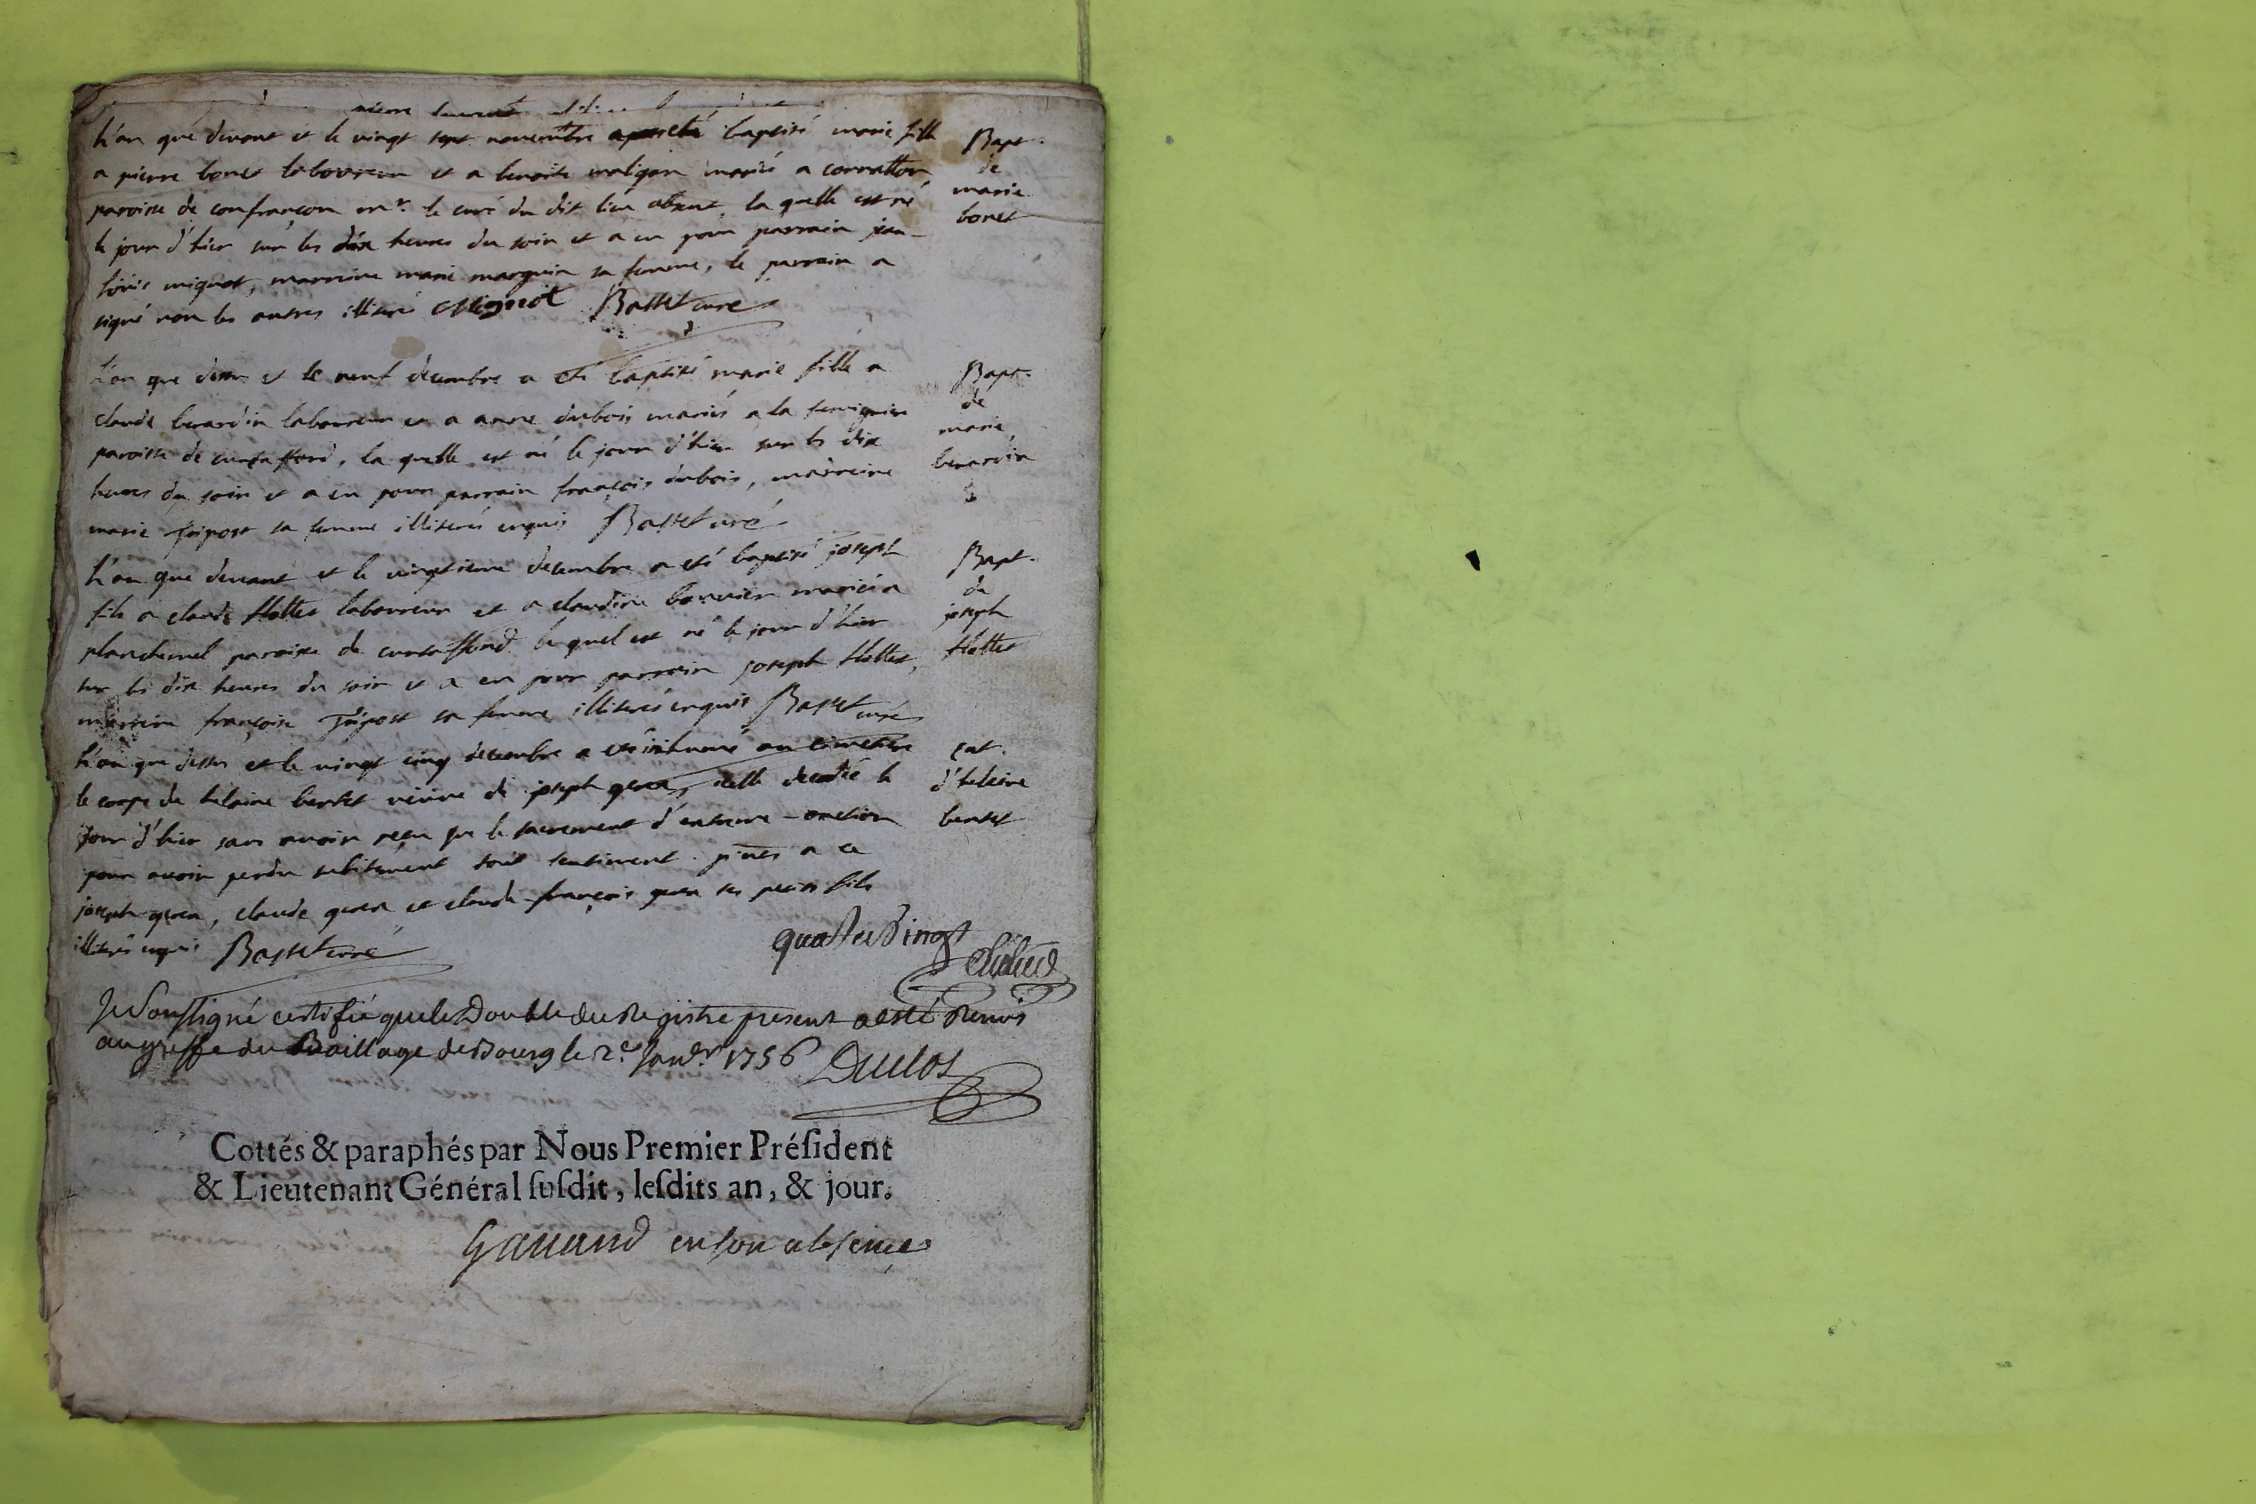 pierre
L'an que devant et le vingt sept novembre a esté baptisé marie fille
a pierre bonet laboureur et a benoite maligon mariés a corvatton
paroisse de confrançon mr. le curé du dit lieu absent, la quelle est né
le jour d'hier sur les dix heures du soir et a eu pour parrain jean
loüis mignot, marreine marie marguin sa femme, le parrain a
signé non les autres illiteré Mignot Basset curé
L'an que dessus et le neuf decembre a eté baptisé marie fille a
claude berardin laboureur et a anne dubois mariés a la
paroisse de curtaffond, la quelle est né le jour d'hier sur les dix
heures du soir et a eu pour parrain françois dubois, marreine
marie sa femme illiterés enquis Basset curé
L'an que devant et le vingtieme decembre a eté baptisé joseph
fils a claude Hottet laboureur et a claudine bouvier mariés a
planchemel paroisse de curtaffond lequel est né le jour d'hier
sur les dix heures du soir et a eu pour parrain joseph Hottet,
marreine françoise sa femme illiterés enquis Basset curé
L'an que dessus et le vingt cinq decembre a eté inhumé au cimetiere
le corps de helaine bertet veuve de joseph icelle decedée le
jour d'hier sans avoir reçu que le sacrement d'extreme-onction
pour avoir perdu subitement tout sentiment. pnts a ce
joseph , claude et claude-françois ses petits fils
illiterés enquis Basset curé
Bapt.
de
marie
bonet
Bapt.
de
marie
berardin
Bapt.
de
joseph
Hottet
d'helaine
bertet
quattrevingt
Je Soussigné certifie que le Double du Registre present a esté Remis
au greffe du Baillage de Bourg le 2e Janvr 1756 Duclos
Cottés & paraphés par Nous Premier Préſident
& Lieutenant Général ſuſdit, leſdits an, & jour.
en son absence